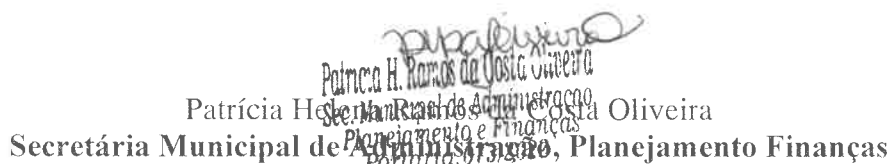 Patrícia H. Ramos da Costa Oliveira
Sec. Municipal de Administração
Planejamento e Finanças
Patrícia Helena Ramos da Costa Oliveira
Secretária Municipal de Administração, Planejamento Finanças